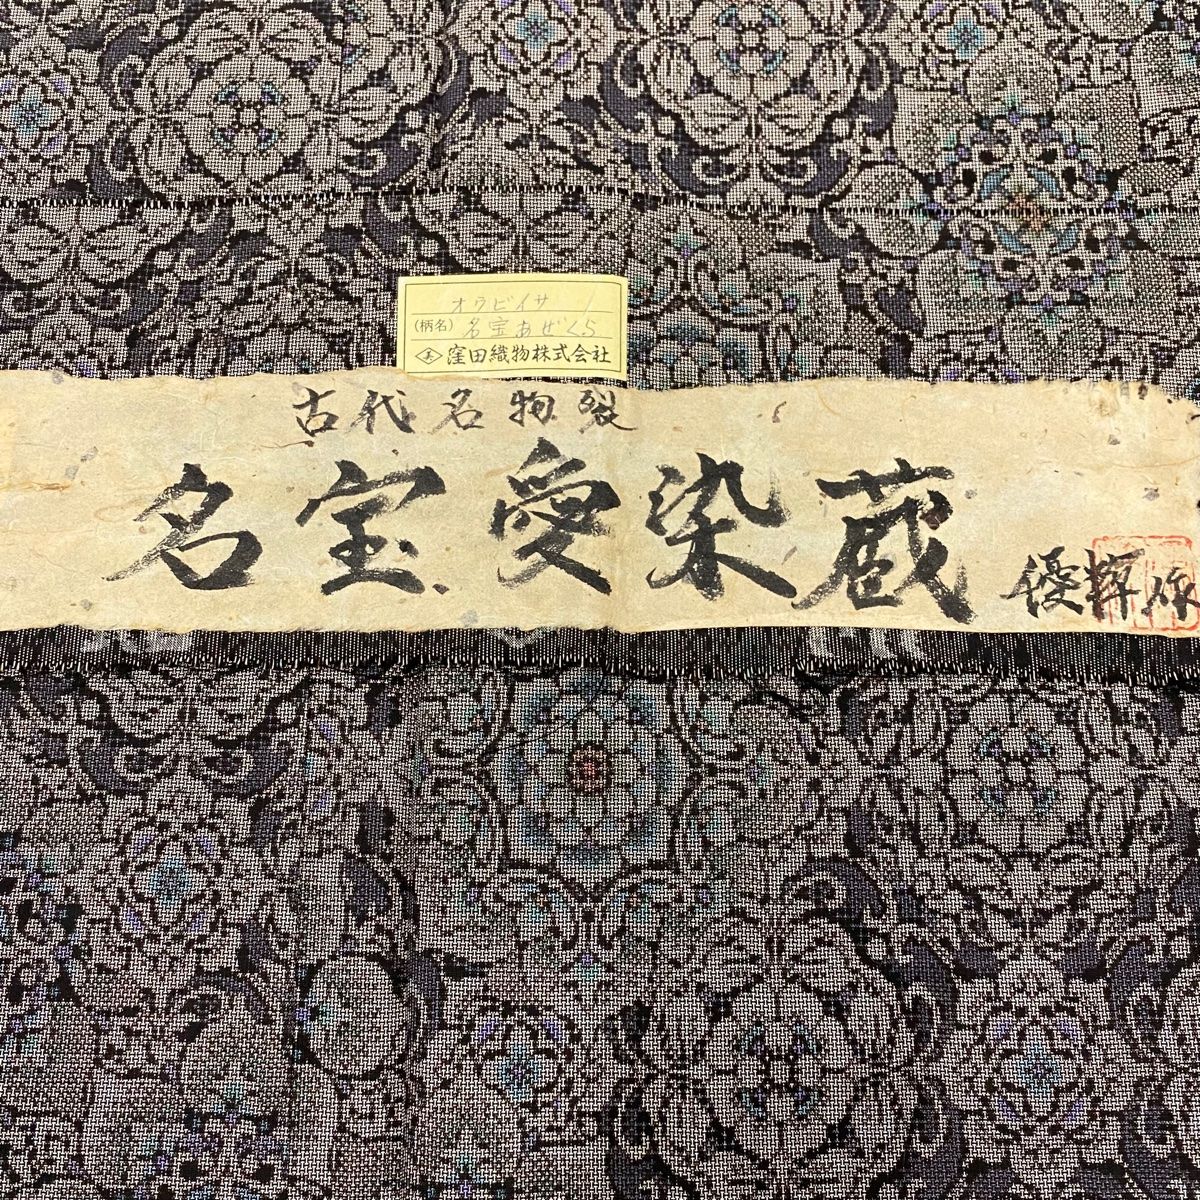 オウビイサ
(柄名) 名宝あぜくら
窪田織物株式会社
古代名物裂
名宝愛染蔵
優輝作